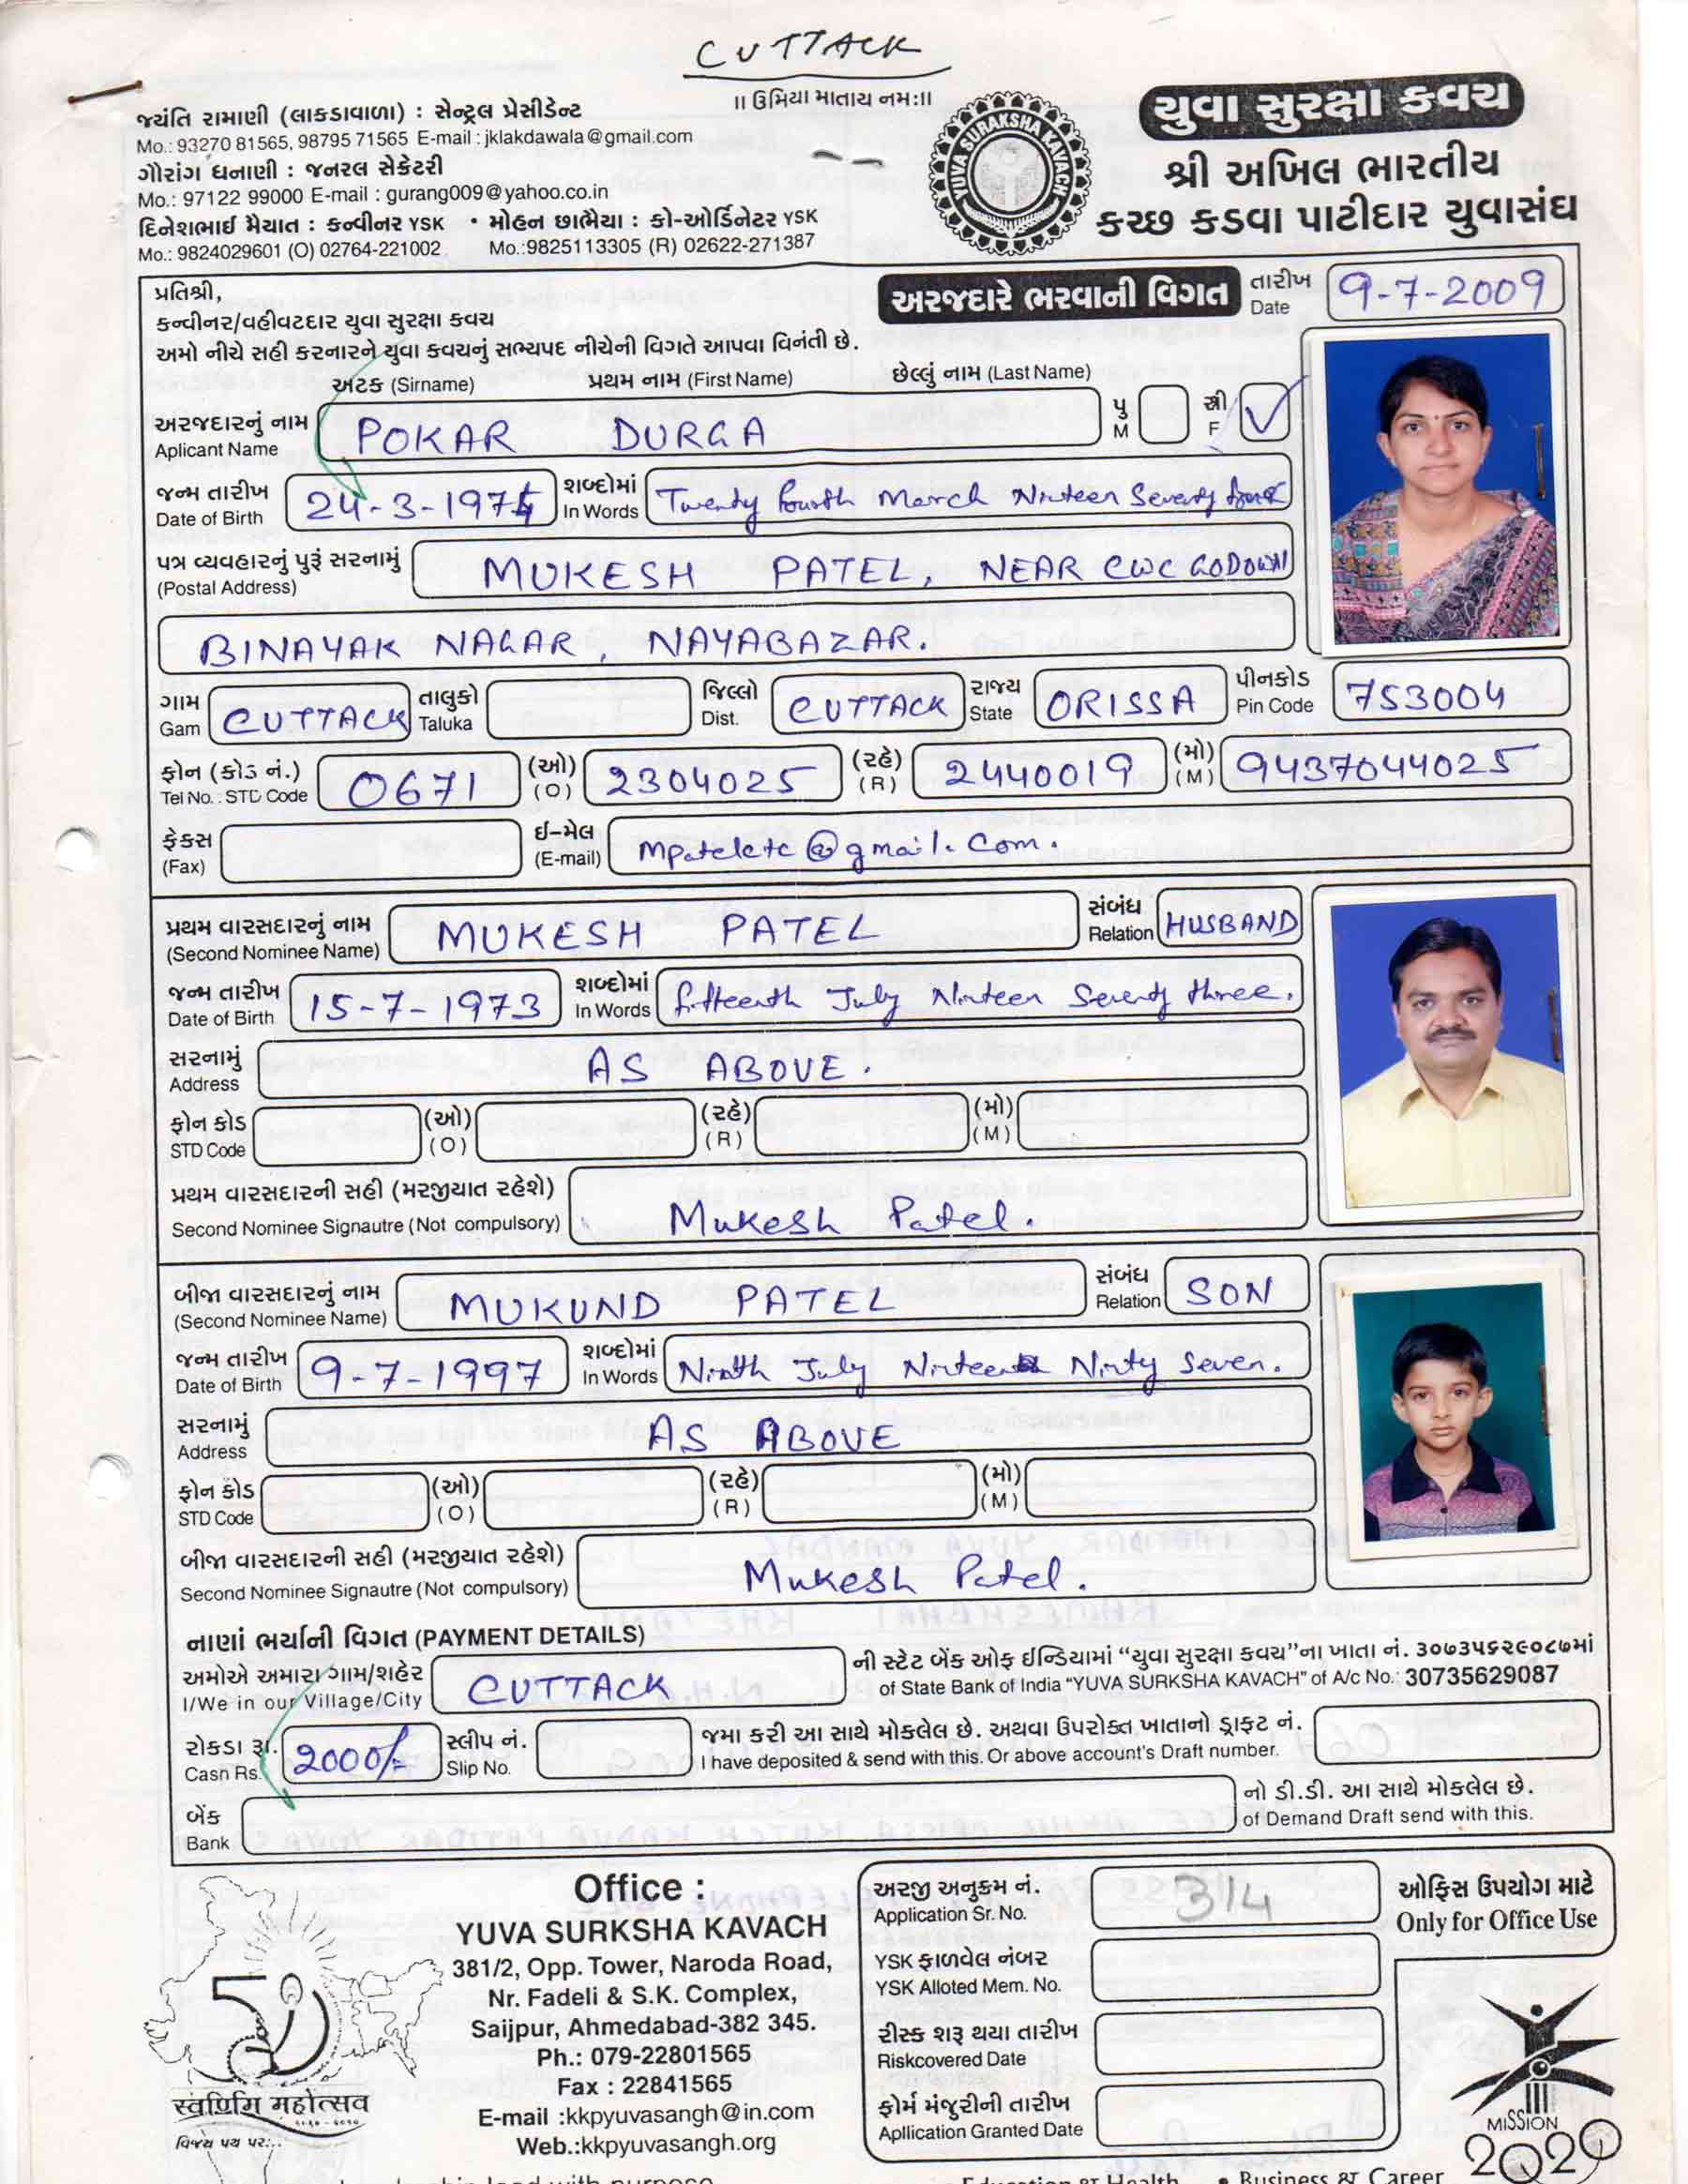 CUTTACK
॥ ઉમિયા માતાય નમ:॥
જયંતિ રામાણી (લાકડાવાળા) : સેન્ટ્રલ પ્રેસીડેન્ટ
Mo.: 93270 81565, 98795 71565 E-mail : jklakdawala@gmail.com
ગૌરાંગ ધનાણી : જનરલ સેક્રેટરી
Mo.: 97122 99000 E-mail : gurang009@yahoo.co.in
દિનેશભાઈ મૈયાત : કન્વીનર YSK • મોહન છાભૈયા : કો-ઓર્ડિનેટર YSK
Mo.: 9824029601 (O) 02764-221002 Mo.:9825113305 (R) 02622-271387
YUVA SURAKSHA KAVACH
યુવા સુરક્ષા કવચ
શ્રી અખિલ ભારતીય
કચ્છ કડવા પાટીદાર યુવાસંઘ
પ્રતિશ્રી,
કન્વીનર/વહીવટદાર યુવા સુરક્ષા કવચ
અમો નીચે સહી કરનારને યુવા કવચનું સભ્યપદ નીચેની વિગતે આપવા વિનંતી છે.
અરજદારે ભરવાની વિગત તારીખ Date 9-7-2009
અટક (Sirname) પ્રથમ નામ (First Name) છેલ્લું નામ (Last Name)
અરજદારનું નામ Aplicant Name POKAR DURGA પુ M સ્ત્રી F ✓
જન્મ તારીખ Date of Birth 24-3-1974 શબ્દોમાં In Words Twenty fourth March Ninteen Seventy four
પત્ર વ્યવહારનું પુરૂં સરનામું (Postal Address) MUKESH PATEL, NEAR CWC GODOWN
BINAYAK NAGAR, NAYABAZAR.
ગામ Gam CUTTACK તાલુકો Taluka જિલ્લો Dist. CUTTACK રાજ્ય State ORISSA પીનકોડ Pin Code 753004
ફોન (કોડ નં.) Tel No. : STD Code 0671 (ઓ) (O) 2304025 (રહે) (R) 2440019 (મો) (M) 9437044025
ફેકસ (Fax) ઈ-મેલ (E-mail) mpatelctc@gmail.com.
પ્રથમ વારસદારનું નામ (Second Nominee Name) MUKESH PATEL સંબંધ Relation HUSBAND
જન્મ તારીખ Date of Birth 15-7-1973 શબ્દોમાં In Words fifteenth July Ninteen Seventy three.
સરનામું Address AS ABOVE.
ફોન કોડ STD Code (ઓ) (O) (રહે) (R) (મો) (M)
પ્રથમ વારસદારની સહી (મરજીયાત રહેશે)
Second Nominee Signautre (Not compulsory) Mukesh Patel.
બીજા વારસદારનું નામ (Second Nominee Name) MUKUND PATEL સંબંધ Relation SON
જન્મ તારીખ Date of Birth 9-7-1997 શબ્દોમાં In Words Ninth July Ninteen Ninty Seven.
સરનામું Address AS ABOVE
ફોન કોડ STD Code (ઓ) (O) (રહે) (R) (મો) (M)
બીજા વારસદારની સહી (મરજીયાત રહેશે)
Second Nominee Signautre (Not compulsory) Mukesh Patel.
નાણાં ભર્યાની વિગત (PAYMENT DETAILS)
અમોએ અમારા ગામ/શહેર I/We in our Village/City CUTTACK
ની સ્ટેટ બેંક ઓફ ઈન્ડિયામાં “યુવા સુરક્ષા કવચ”ના ખાતા નં. ૩૦૭૩૫૬૨૯૦૮૭માં
of State Bank of India “YUVA SURKSHA KAVACH” of A/c No.: 30735629087
રોકડા રૂા. Casn Rs. 2000/- સ્લીપ નં. Slip No. જમા કરી આ સાથે મોકલેલ છે. અથવા ઉપરોક્ત ખાતાનો ડ્રાફટ નં.
I have deposited & send with this. Or above account's Draft number.
બેંક Bank નો ડી.ડી. આ સાથે મોકલેલ છે.
of Demand Draft send with this.
Office :
YUVA SURKSHA KAVACH
381/2, Opp. Tower, Naroda Road,
Nr. Fadeli & S.K. Complex,
Saijpur, Ahmedabad-382 345.
Ph.: 079-22801565
Fax : 22841565
E-mail :kkpyuvasangh@in.com
Web.:kkpyuvasangh.org
50
સ્વર્ણિમ મહોત્સવ
અરજી અનુક્રમ નં. Application Sr. No. 314
YSK ફાળવેલ નંબર YSK Alloted Mem. No.
રીસ્ક શરૂ થયા તારીખ Riskcovered Date
ફોર્મ મંજુરીની તારીખ Apllication Granted Date
ઓફિસ ઉપયોગ માટે
Only for Office Use
MISSION
2020
Education & Health • Business & Career